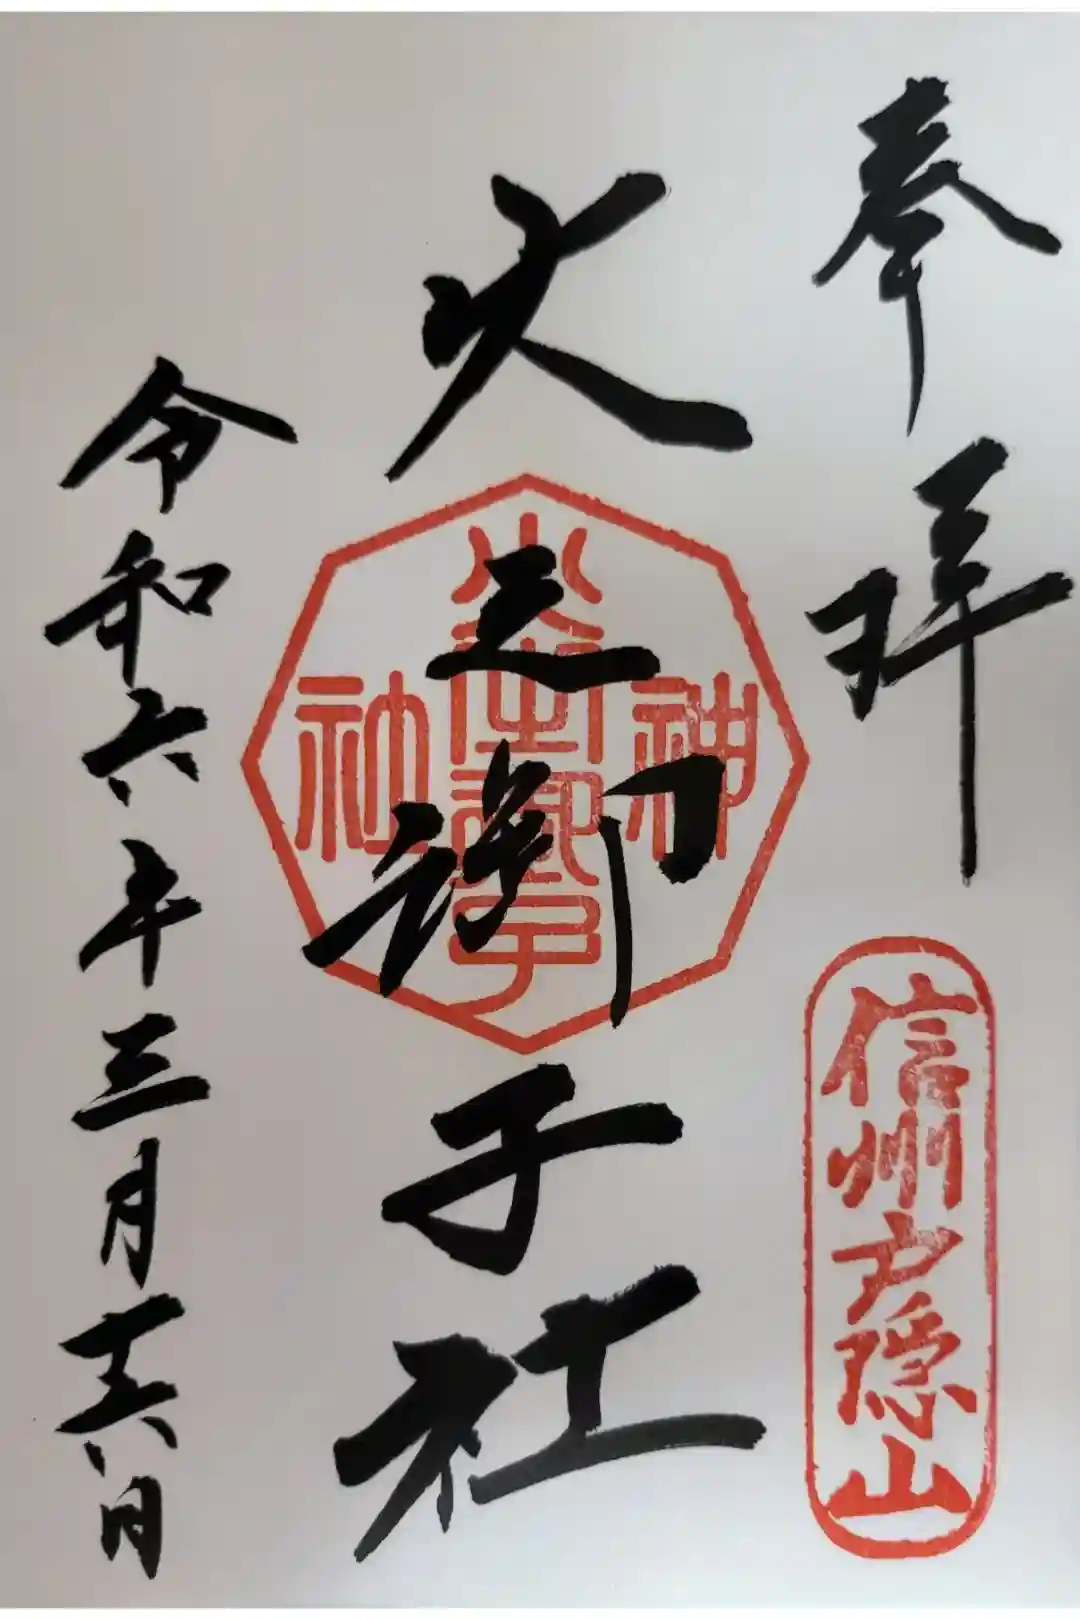 奉拝
信州戸隠山
火之御子社
神
火之御子
社
令和六年三月十六日